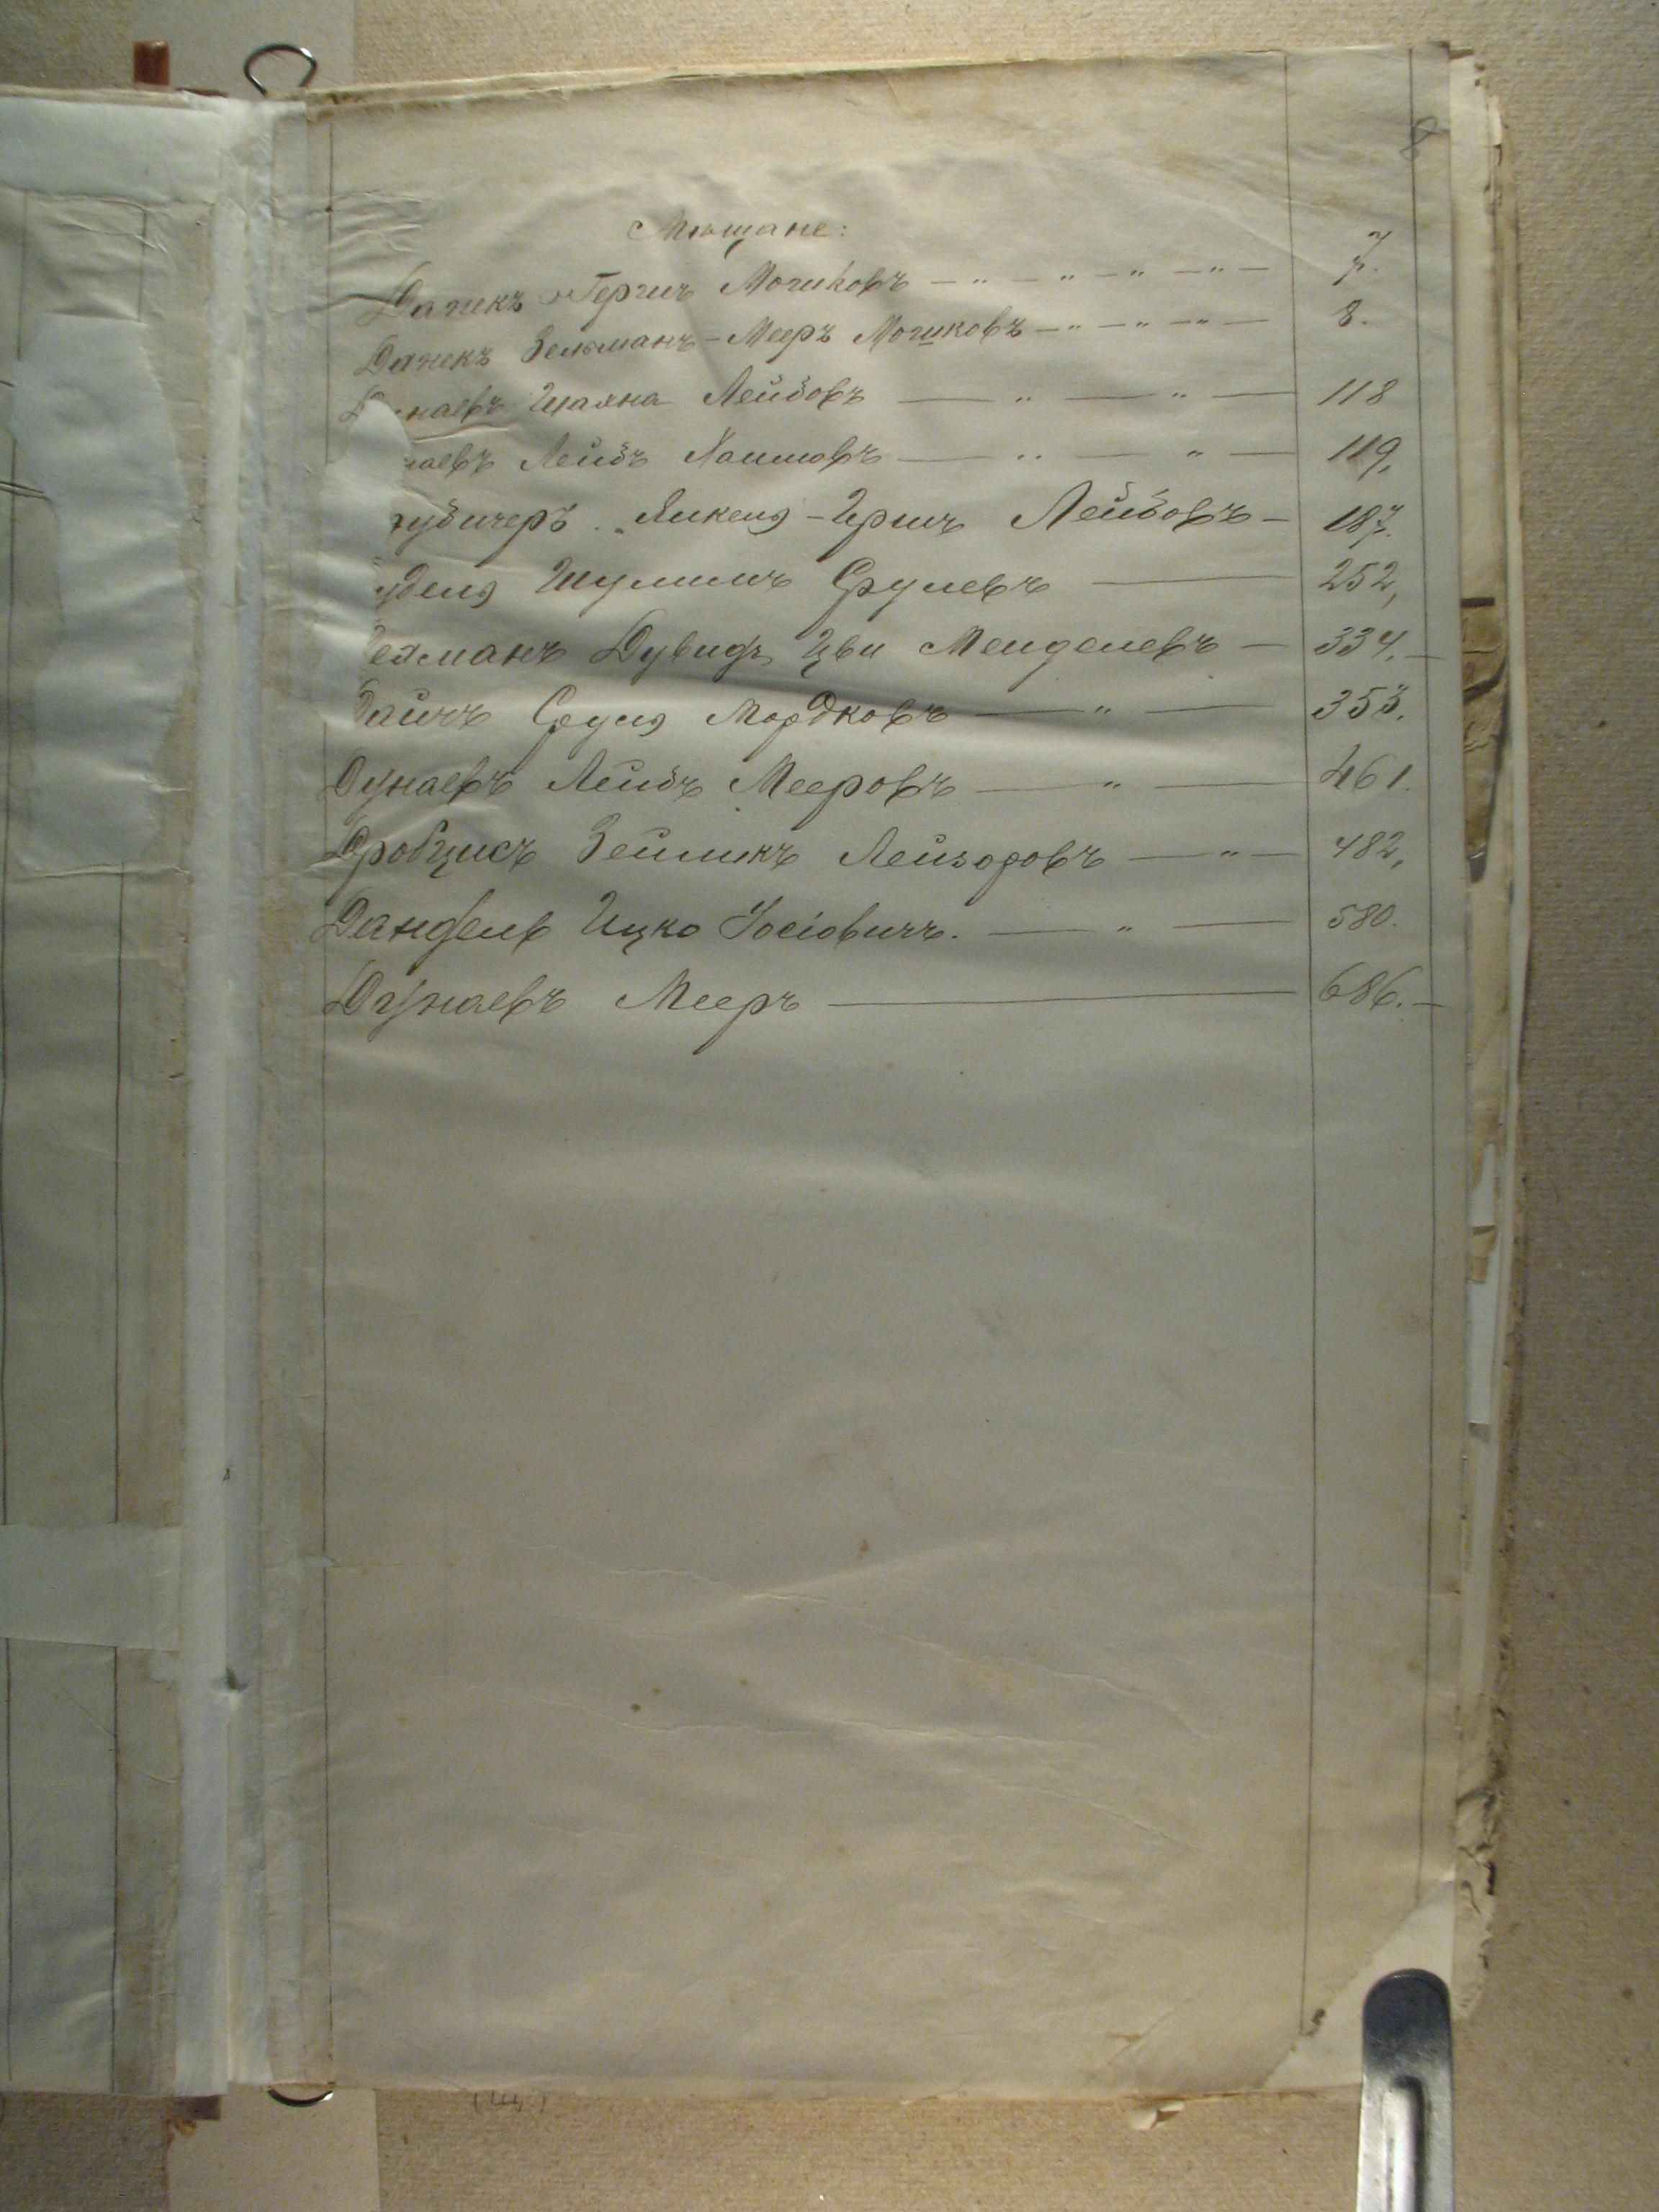 8
Мѣщане:
Данекъ Гершъ Мошковъ — „ — „ — „ — „ — 7.
Данекъ Зельманъ-Мееръ Мошковъ — „ — „ — „ — 8.
наевъ Шаяна Лейбовъ — „ — „ — 118
наевъ Лейбъ Хаимовъ — „ — „ — 119,
убичеръ Янкель-Гершъ Лейбовъ — 187.
удель Шулимъ Срулевъ — 252,
ехманъ Дувидъ Цви Менделевъ — 334.—
айчъ Сруль Мордковъ — „ — 353.
Дунаевъ Лейбъ Мееровъ — „ — 461.
Зейликъ Лейзоровъ — „ — 482,
Дандель Ицко Іосіовичъ. — „ — 580.
Дунаевъ Мееръ — 686.—